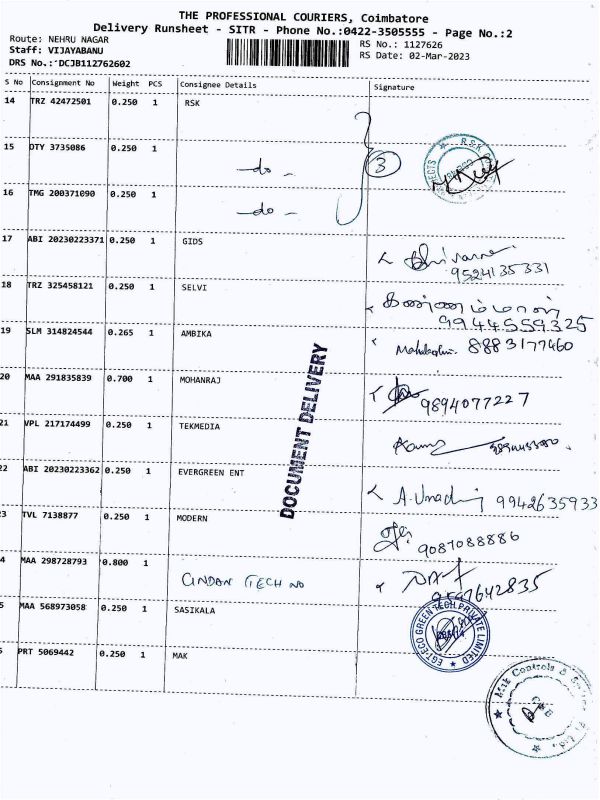 THE PROFESSIONAL COURIERS, Coimbatore
Delivery Runsheet - SITR - Phone No.:0422-3505555 - Page No.:2
Route: NEHRU NAGAR
RS No.: 1127626
Staff: VIJAYABANU
RS Date: 02-Mar-2023
DRS No.: DCJB112762602
S No Consignment No Weight PCS Consignee Details Signature
14 TRZ 42472501 0.250 1 RSK
15 DTY 3735086 0.250 1 -do- 3
16 TMG 200371090 0.250 1 -do-
17 ABI 20230223371 0.250 1 GIDS
9524135331
18 TRZ 325458121 0.250 1 SELVI
9944559325
19 SLM 314824544 0.265 1 AMBIKA 8883177460
20 MAA 291835839 0.700 1 MOHANRAJ 9894077227
21 VPL 217174499 0.250 1 TEKMEDIA
22 ABI 20230223362 0.250 1 EVERGREEN ENT 9942635933
3 TVL 7138877 0.250 1 MODERN 9087088886
4 MAA 298728793 0.800 1 TECH
5 MAA 568973058 0.250 1 SASIKALA
EGT-ECO GREEN TECH PRIVATE LIMITED
PRT 5069442 0.250 1 MAK
DOCUMENT DELIVERY